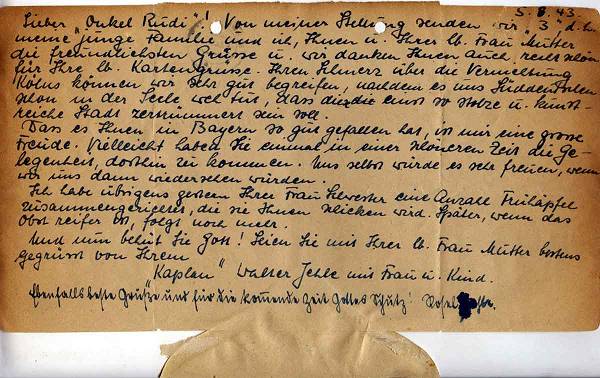 5. 8. 43
Lieber „Onkel Rudi"! Von meiner Stellung senden wir „3" d.h.
meine junge Familie und ich, Ihnen u. Ihrer lb. Frau Mutter
die freundlichsten Grüsse u. wir danken Ihnen auch recht schön
für Ihre lb. Kartengrüsse. Ihren Schmerz über die Vernichtung
Kölns können wir sehr gut begreifen, nachdem es uns Süddeutschen
schon in der Seele weh tut, dass die einst so stolze u. kunst-
reiche Stadt zertrümmert sein soll.
Dass es Ihnen in Bayern so gut gefallen hat, ist mir eine grosse
Freude. Vielleicht haben Sie einmal in einer schöneren Zeit die Ge-
legenheit, dorthin zu kommen. Uns selbst würde es sehr freuen, wenn
wir uns dann wiedersehen würden.
Ich habe übrigens gestern Ihrer Frau Schwester eine Anzahl Frühäpfel
zusammengerifferet, die sie Ihnen schicken wird. Später, wenn das
Obst reifer ist, folgt noch mehr.
Und nun behüt Sie Gott! Seien Sie mit Ihrer lb. Frau Mutter bestens
gegrüsst von Ihrem
„Kaplan" Walter Jehle mit Frau u. Kind.
Ebenfalls beste Grüsse und für die kommende Zeit Gottes Schutz! Rosel